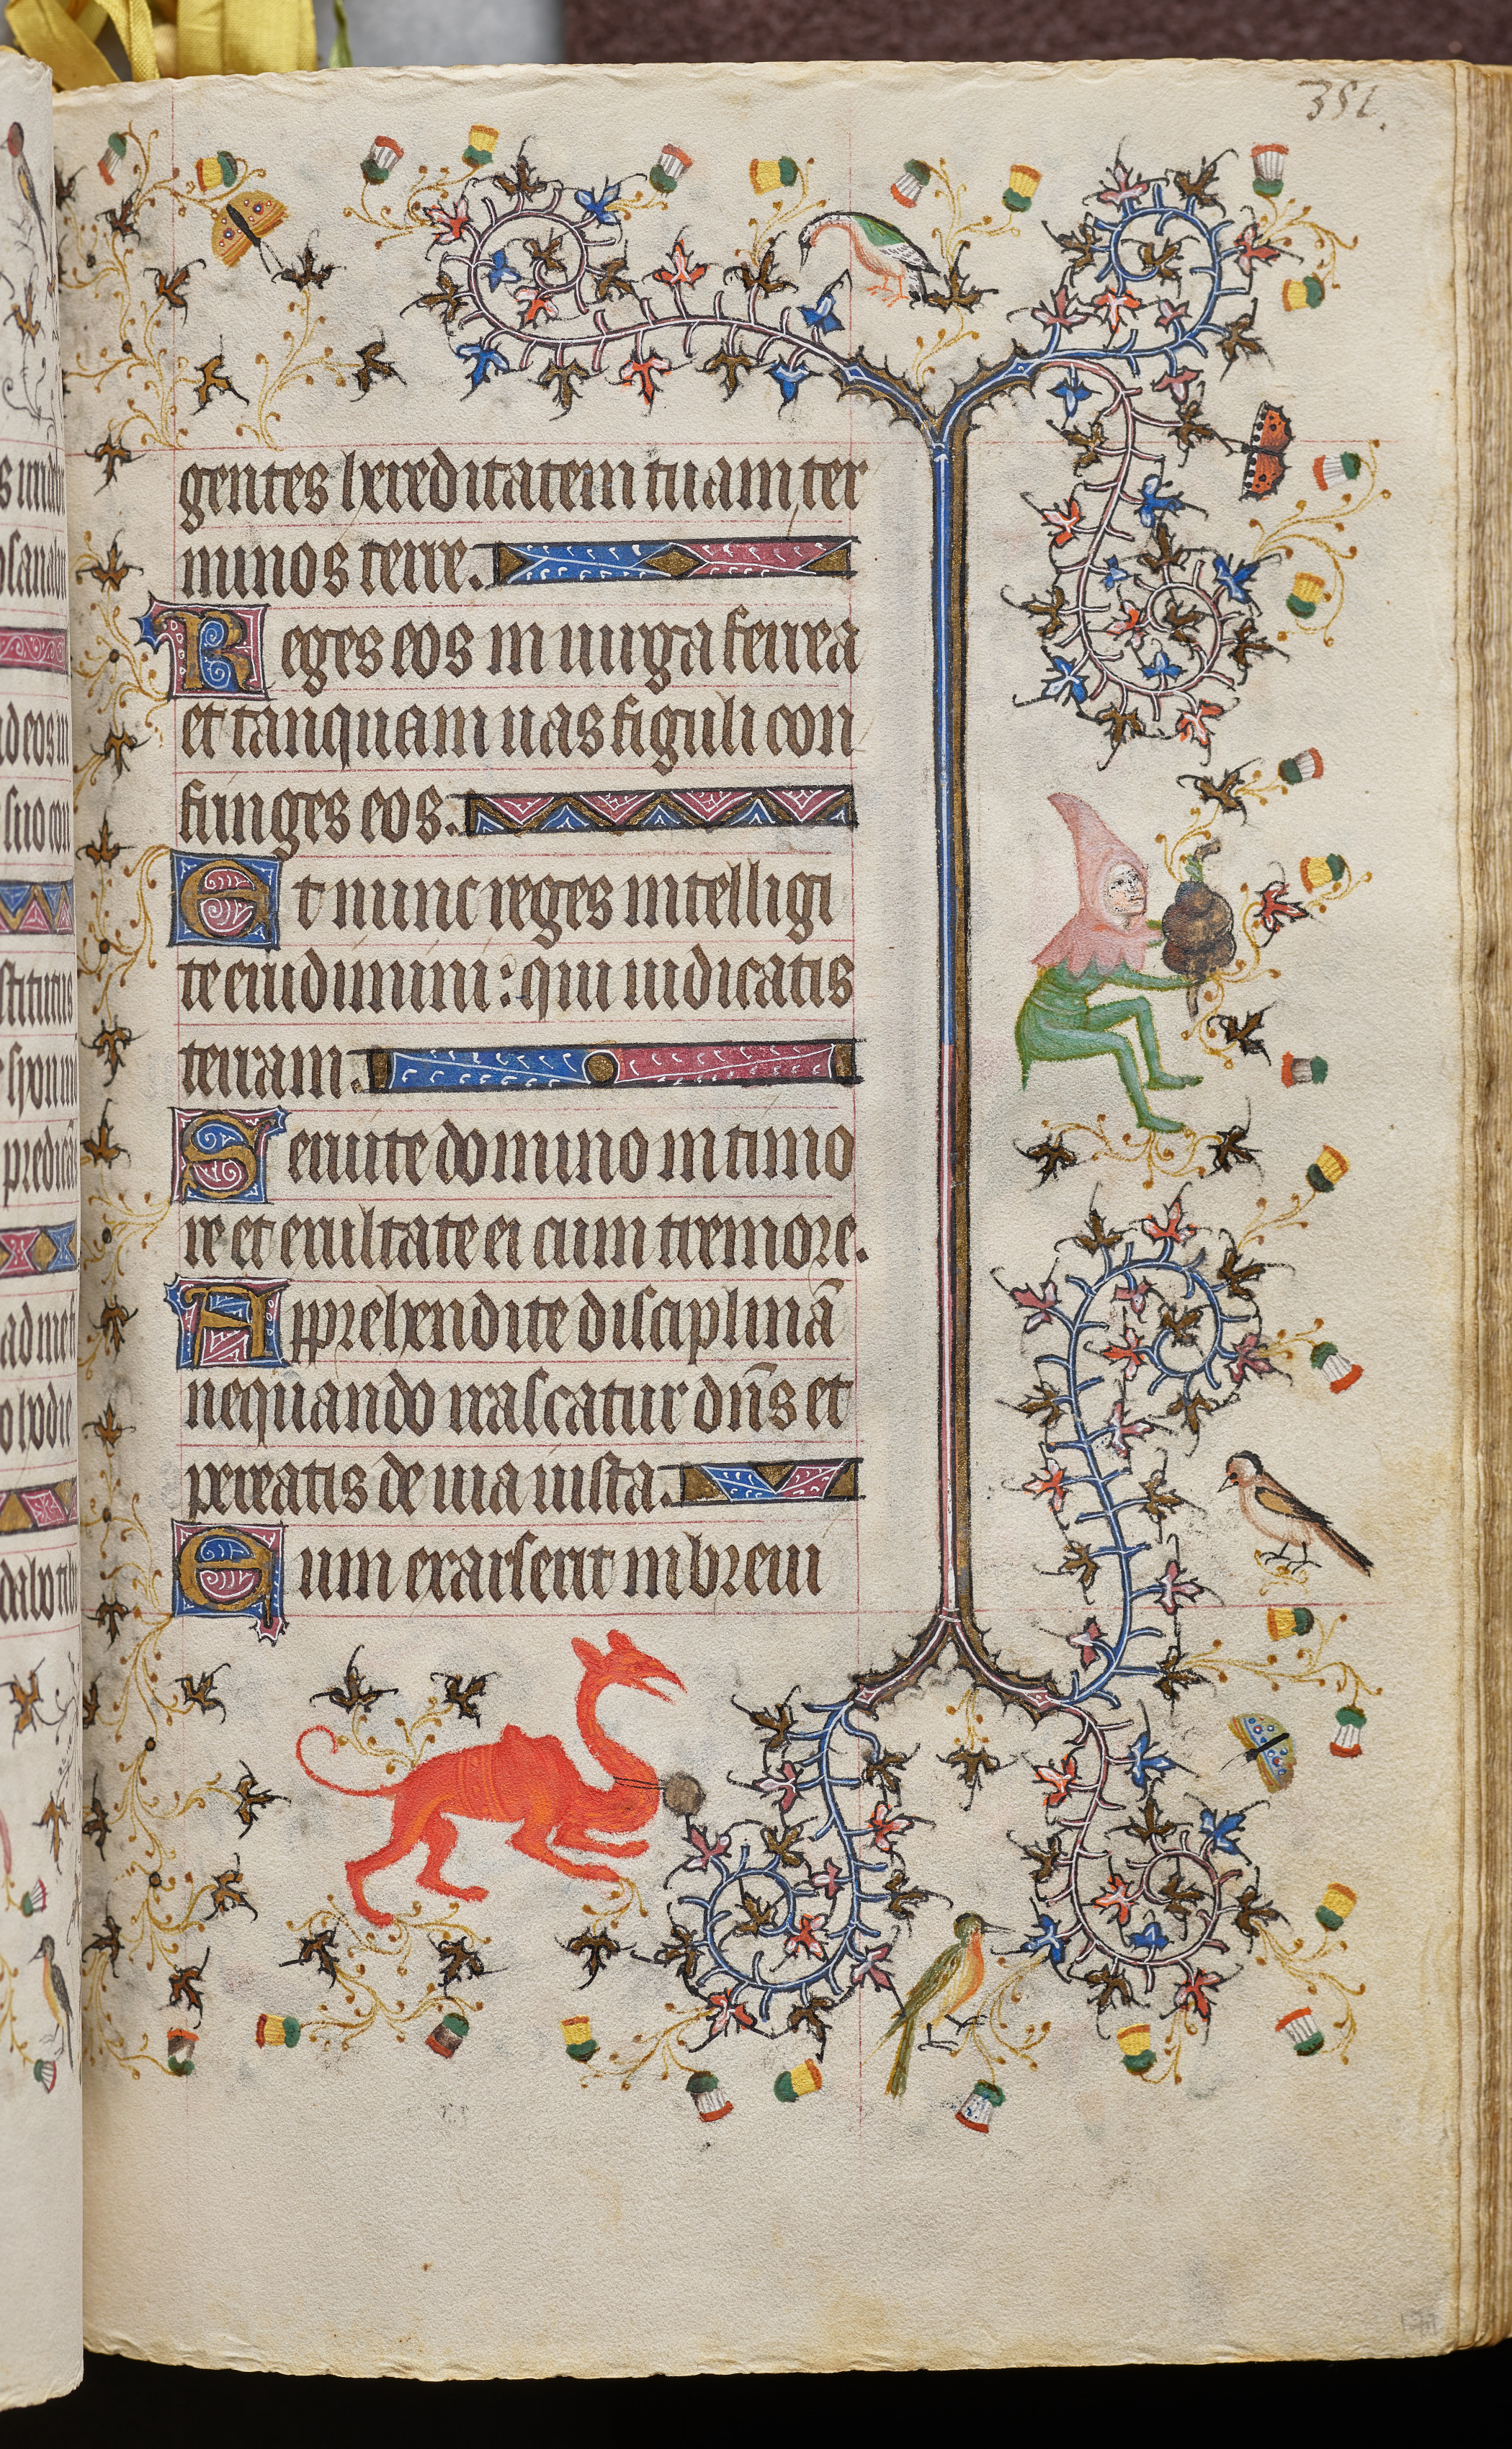 351.
gentes hereditatem tuam ter
minos terre.
Reges eos in uirga ferrea
et tanquam uas figuli con
fringes eos.
Et nunc reges intelligi
te erudimini: qui iudicatis
terram.
Seruite domino in timo
re et exultate ei cum tremore.
Apprehendite disciplinā
nequando irascatur dn̄s et
pereatis de uia iusta.
Cum exarserit in breui